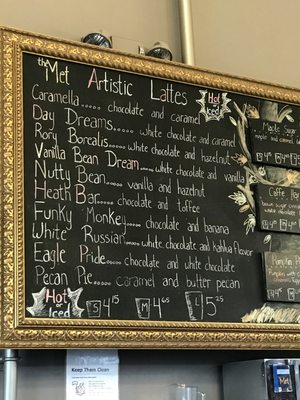 the Met Artistic Lattes
Hot or Iced
Caramella..... chocolate and caramel
Day Dreams..... white chocolate and caramel
Rory Borealis..... white chocolate and hazelnut
Vanilla Bean Dream..... white chocolate and vanilla
Nutty Bean..... vanilla and hazelnut
Heath Bar..... chocolate and toffee
Funky Monkey.... chocolate and banana
White Russian..... white chocolate and kahlua Flavor
Eagle Pride..... chocolate and white chocolate
Pecan Pie..... caramel and butter pecan
Hot or Iced
S 4.15 M 4.65 L 5.25
Maple Sugar
Maple and caramel
Caffe
Pumpkin
Keep Them Clean
Met